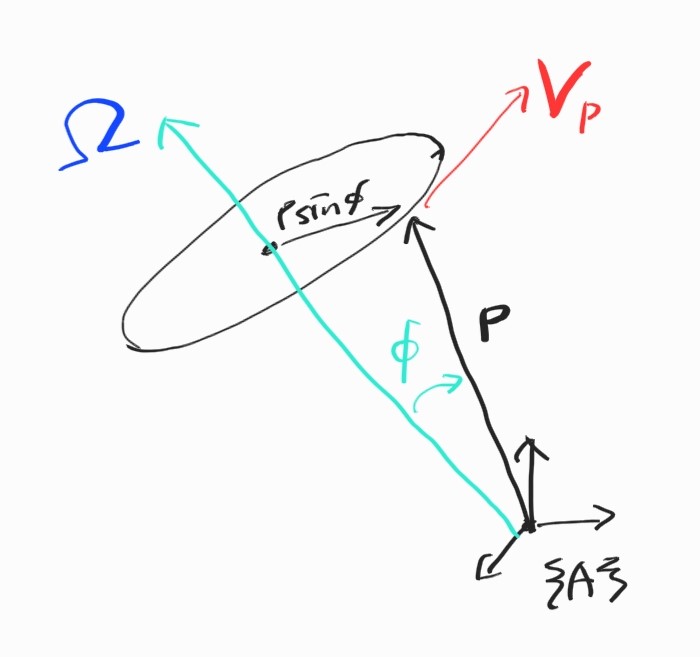 Ω
V_P
P sin ϕ
P
ϕ
{A}